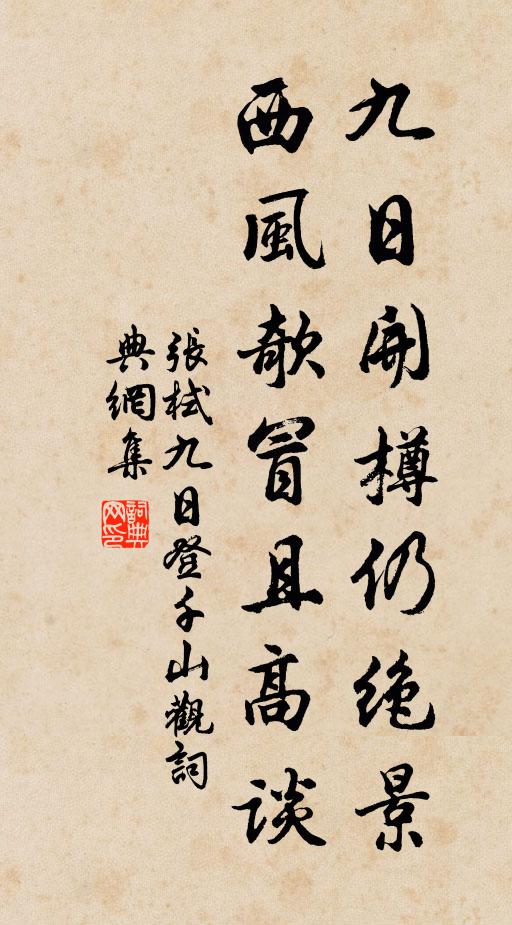 九日開樽仍绝景
西風欹冒且高談
張栻九日登千山觀詞
典網集
詞典
网印